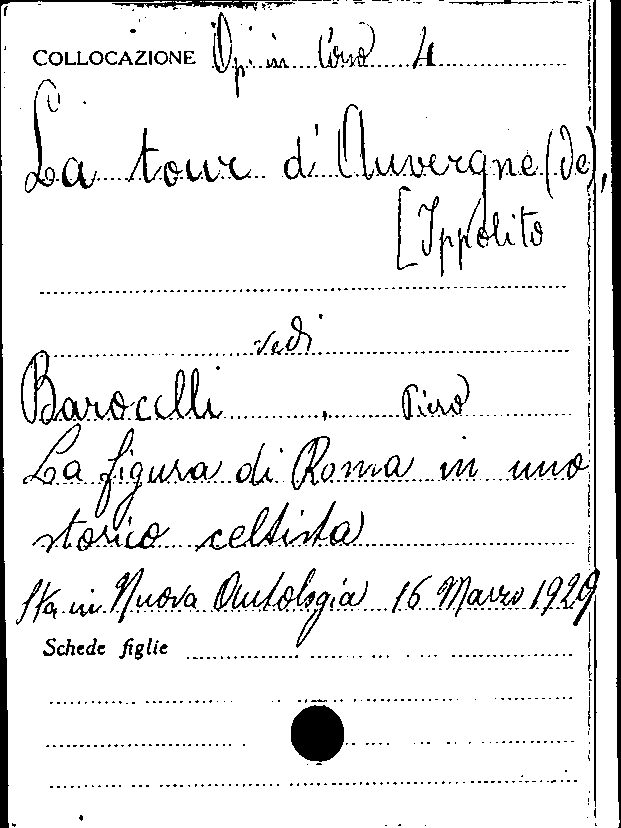 COLLOCAZIONE Op. in Corso 4
La tour d'Auvergne (de),
[Ippolito
vedi
Barocelli, Piero
La figura di Roma in uno
storico celtista
Sta in Nuova Antologia 16 Marzo 1929
Schede figlie